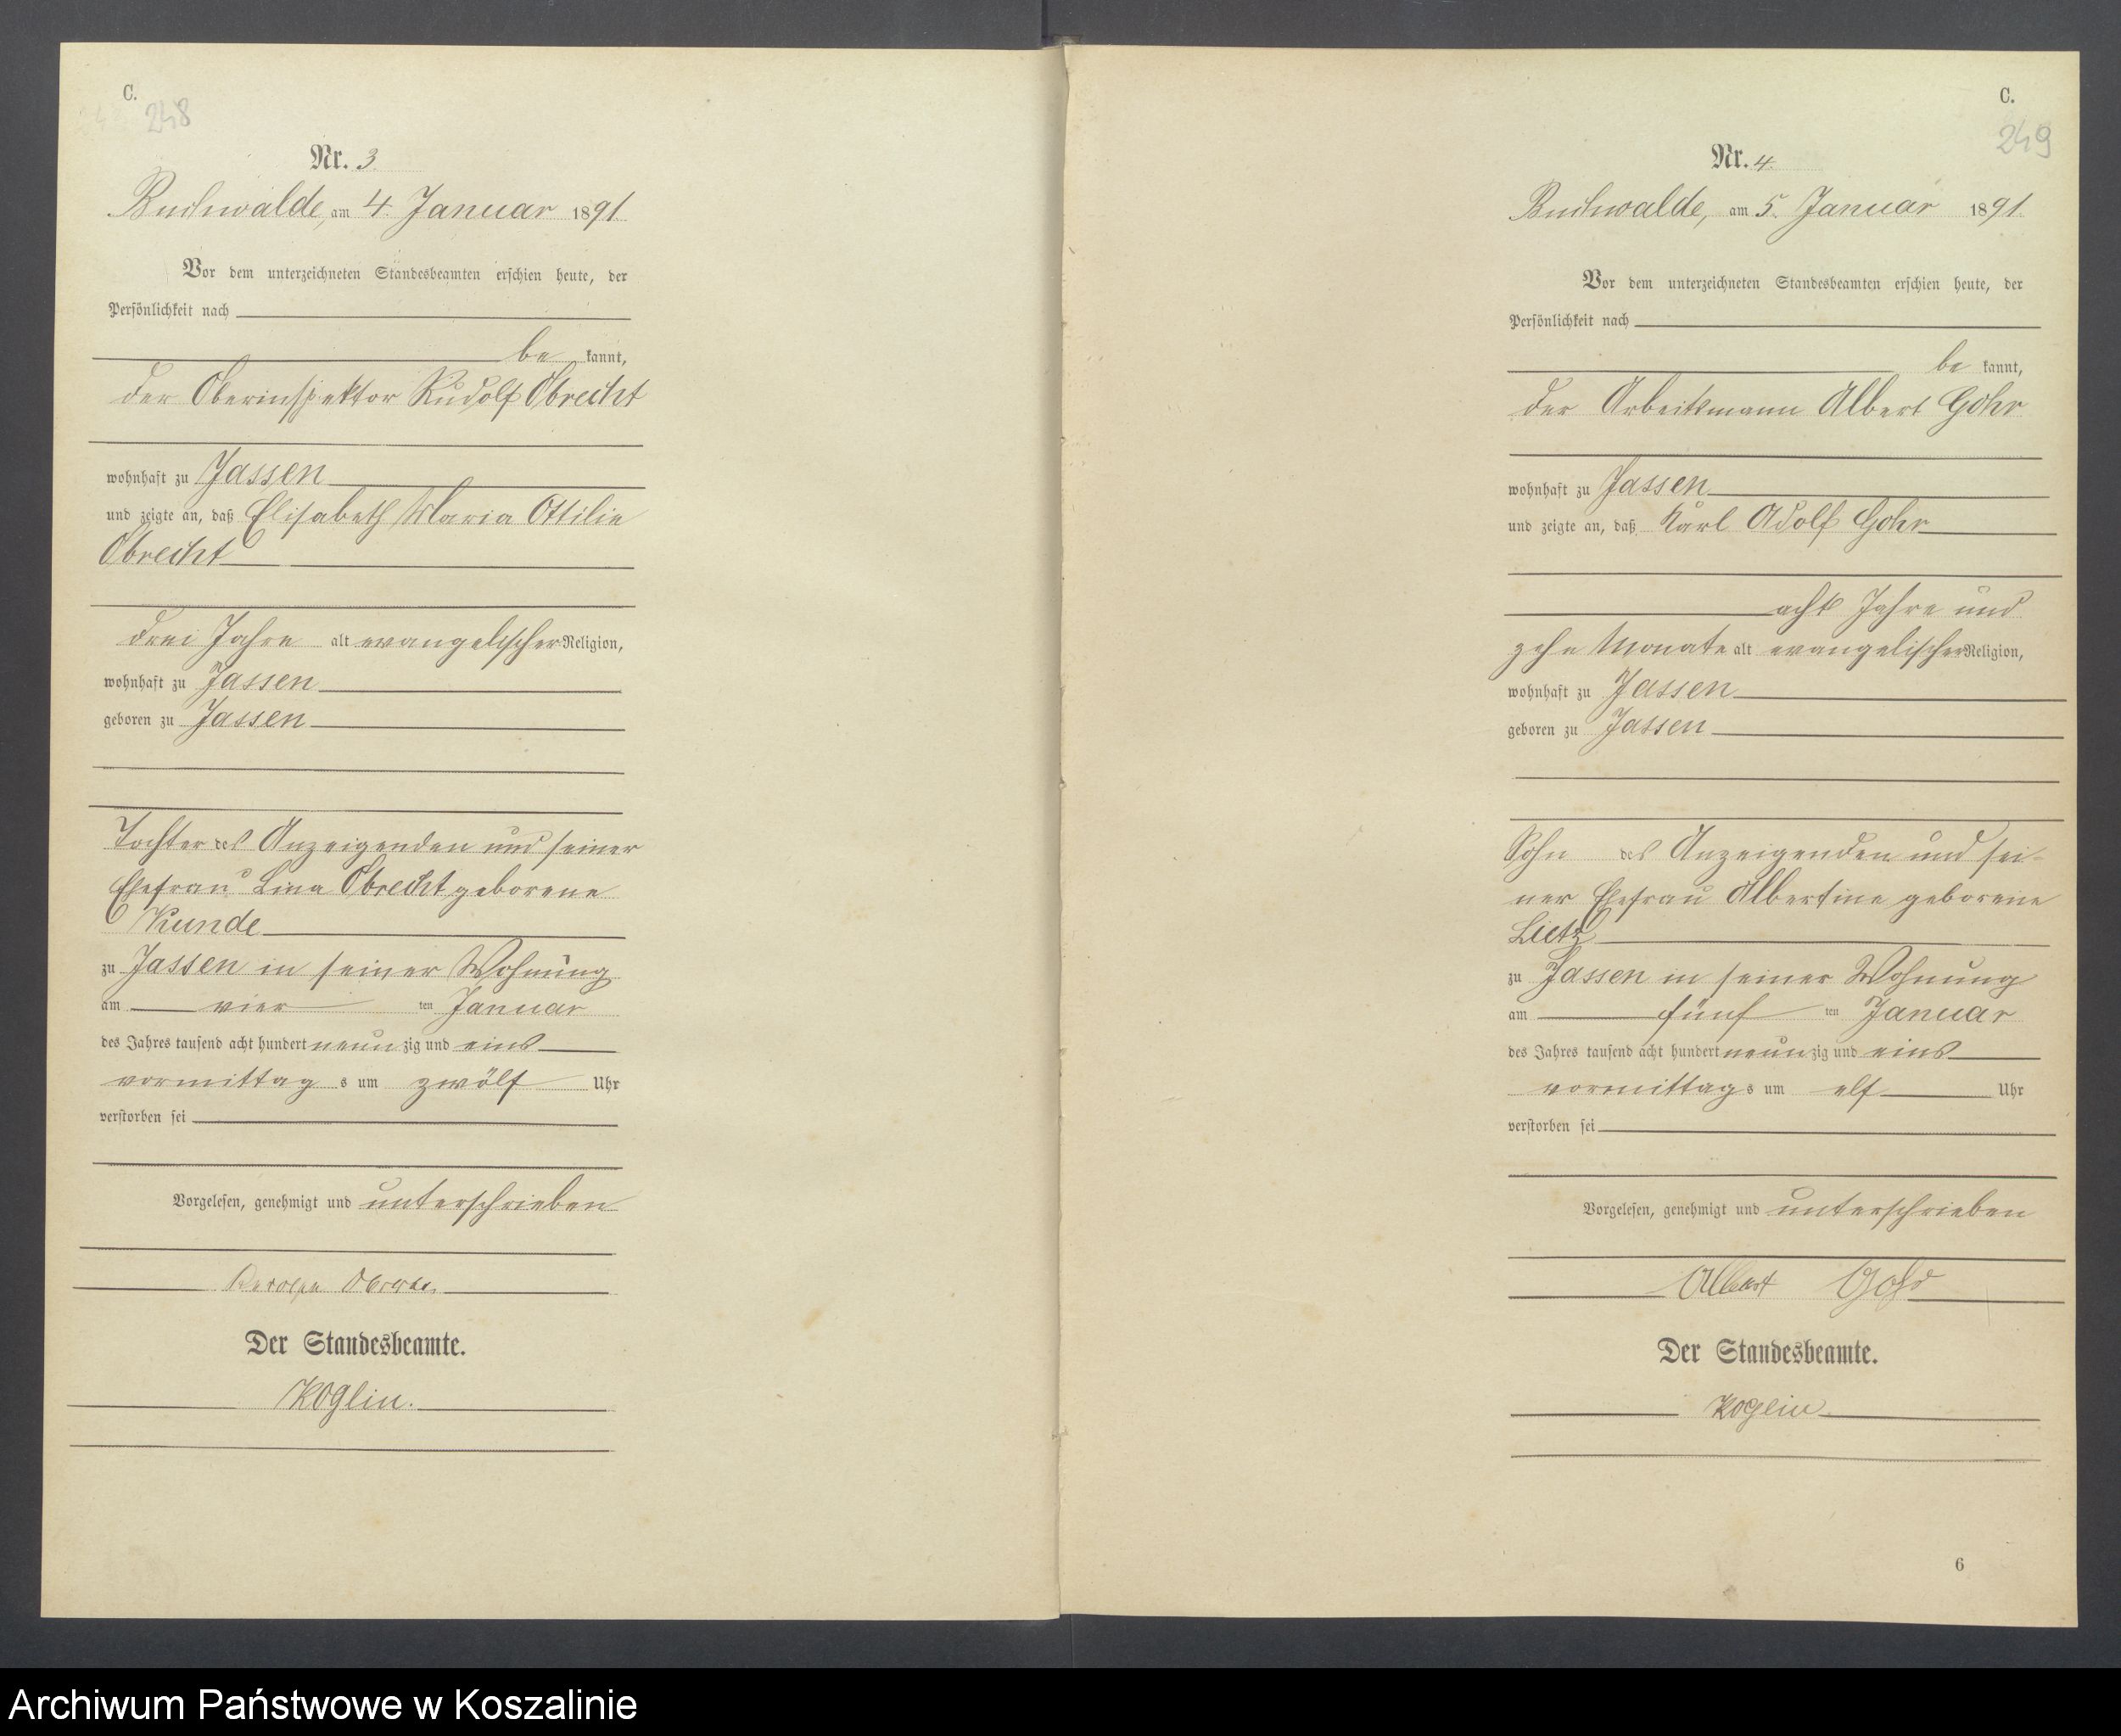 C.
248
Nr. 3.
Buchwalde, am 4. Januar 1891.
Vor dem unterzeichneten Standesbeamten erschien heute, der
Persönlichkeit nach
be kannt,
der Oberinspektor Rudolf Obrecht
wohnhaft zu Jassen
und zeigte an, daß Elisabeth Maria Ottilie
Obrecht
drei Jahre alt evangelischer Religion,
wohnhaft zu Jassen
geboren zu Jassen
Tochter des Anzeigenden und seiner
Ehefrau Lina Obrecht geborene
Kunde
zu Jassen in seiner Wohnung
am vier ten Januar
des Jahres tausend acht hundert neun zig und eins
vormittag s um zwölf Uhr
verstorben sei
Vorgelesen, genehmigt und unterschrieben
Der Standesbeamte.
Koglin.
C.
249
Nr. 4.
Buchwalde, am 5. Januar 1891.
Vor dem unterzeichneten Standesbeamten erschien heute, der
Persönlichkeit nach
be kannt,
der Arbeitsmann Albert Gohr
wohnhaft zu Jassen
und zeigte an, daß Karl Adolf Gohr
acht Jahre und
zehn Monate alt evangelischer Religion,
wohnhaft zu Jassen
geboren zu Jassen
Sohn des Anzeigenden und sei-
ner Ehefrau Albertine geborene
Lietz
zu Jassen in seiner Wohnung
am fünf ten Januar
des Jahres tausend acht hundert neun zig und eins
vormittag s um elf Uhr
verstorben sei
Vorgelesen, genehmigt und unterschrieben
Albert Gohr
Der Standesbeamte.
Koglin
6
Archiwum Państwowe w Koszalinie